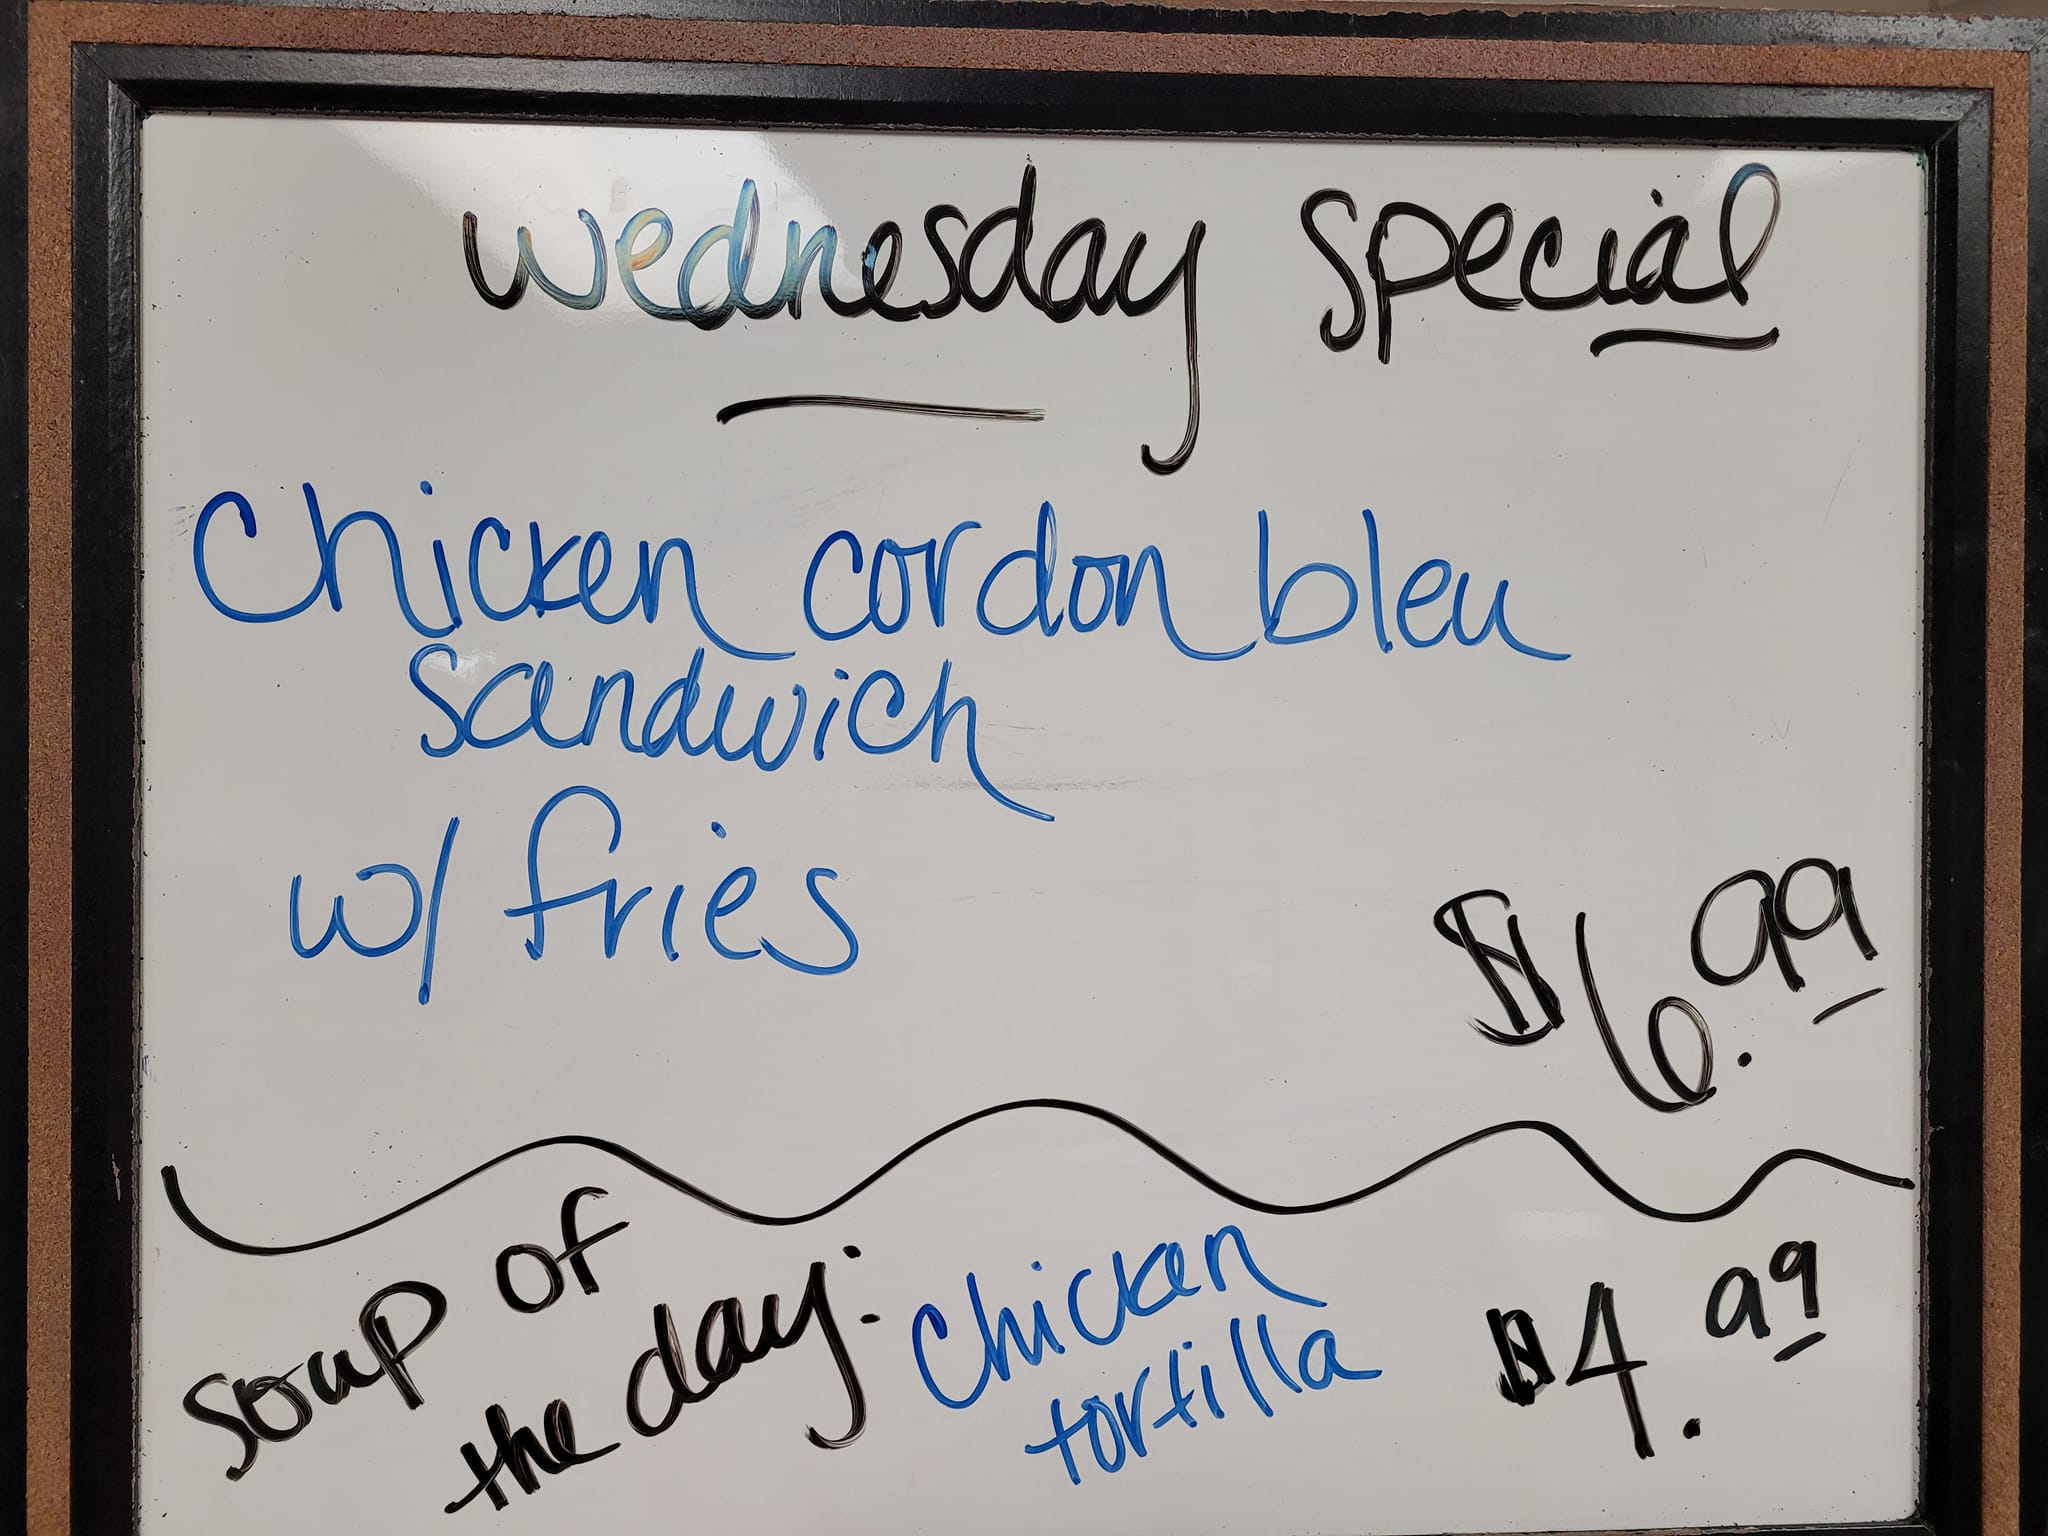 Wednesday special
Chicken cordon bleu
sandwich
w/ fries
$6.99
soup of
the day:
chicken
tortilla
$4.99